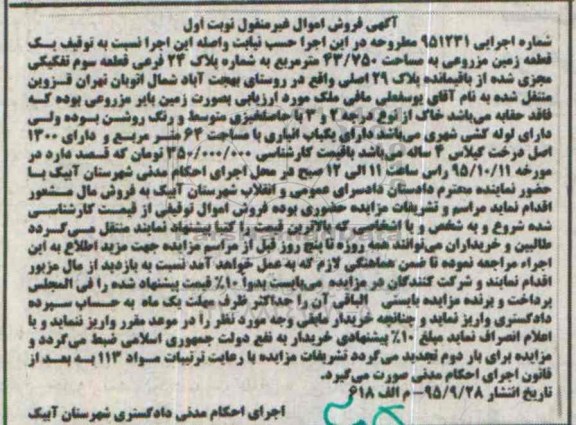 آگهی فروش اموال غیرمنقول نوبت اول
شماره اجرایی ۹۵۱۲۳۱ مطروحه در این اجرا حسب نیابت واصله این اجرا نسبت به توقیف یک
قطعه زمین مزروعی به مساحت ۴۳/۷۵۰ مترمربع به شماره پلاک ۲۴ فرعی قطعه سوم تفکیکی
مجزی شده از باقیمانده پلاک ۲۹ اصلی واقع در روستای بهجت آباد شمال اتوبان تهران قزوین
منتقل شده به نام آقای یوسفعلی مافی ملک مورد ارزیابی بصورت زمین بایر مزروعی بوده که
فاقد حقابه می‌باشد خاک از نوع درجه ۲ و ۳ با حاصلخیزی متوسط و رنگ روشن بوده ولی
دارای لوله کشی شهری می‌باشد دارای یکباب انباری با مساحت ۶۴ متر مربع و دارای ۱۳۰۰
اصل درخت گیلاس ۴ ساله می‌باشد باقیمت کارشناسی ۳۵۰/۰۰۰/۰۰۰ تومان که قصد دارد در
مورخه ۹۵/۱۰/۱۱ راس ساعت ۱۱ الی ۱۲ صبح در محل اجرای احکام مدنی شهرستان آبیک با
حضور نماینده محترم دادستان دادسرای عمومی و انقلاب شهرستان آبیک به فروش مال مشعور
اقدام نماید مراسم و تشریفات مزایده حضوری بوده فروش اموال توقیفی از قیمت کارشناسی
شده شروع و به شخص و یا اشخاصی که بالاترین قیمت را کتبا پیشنهاد نمایند منتقل می‌گردد
طالبین و خریداران می‌توانند همه روزه تا پنج روز قبل از مراسم مزایده جهت مزید اطلاع به این
اجراء مراجعه نموده تا ضمن هماهنگی لازم که به عمل خواهد آمد نسبت به بازدید از مال مزبور
اقدام نمایند و شرکت کنندگان در مزایده می‌بایست بدوا ۱۰٪ قیمت پیشنهاد شده را فی المجلس
پرداخت و برنده مزایده بایستی الباقی آن را حداکثر ظرف مهلت یک ماه به حساب سپرده
دادگستری واریز نماید و چنانچه خریدار مابقی وجه مورد نظر را در موعد مقرر واریز ننماید و یا
اعلام انصراف نماید مبلغ ۱۰٪ پیشنهادی خریدار به نفع دولت جمهوری اسلامی ضبط می‌گردد و
مزایده برای بار دوم تجدید می‌گردد تشریفات مزایده با رعایت ترتیبات مواد ۱۱۳ به بعد از
قانون اجرای احکام مدنی صورت می‌گیرد.
تاریخ انتشار ۹۵/۹/۲۸- م الف ۶۱۸
اجرای احکام مدنی دادگستری شهرستان آبیک